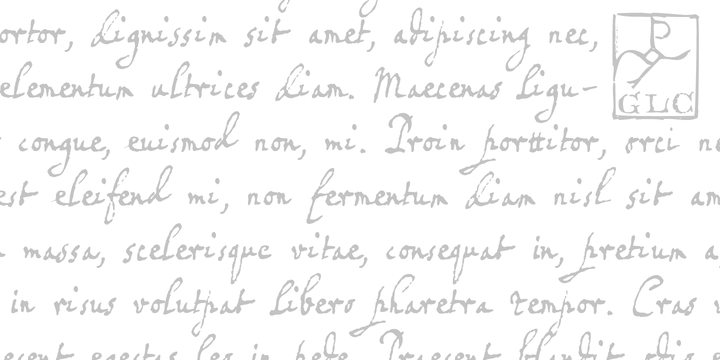 ortor, dignissim sit amet, adipiscing nec,
elementum ultrices diam. Maecenas ligu-
congue, euismod non, mi. Proin porttitor, orci ne
est eleifend mi, non fermentum diam nisl sit am
massa, scelerisque vitae, consequat in, pretium a,
in risus volutpat libero pharetra tempor. Cras v
esent egestas leo in pede. Praesent blandit odio
P
GLC